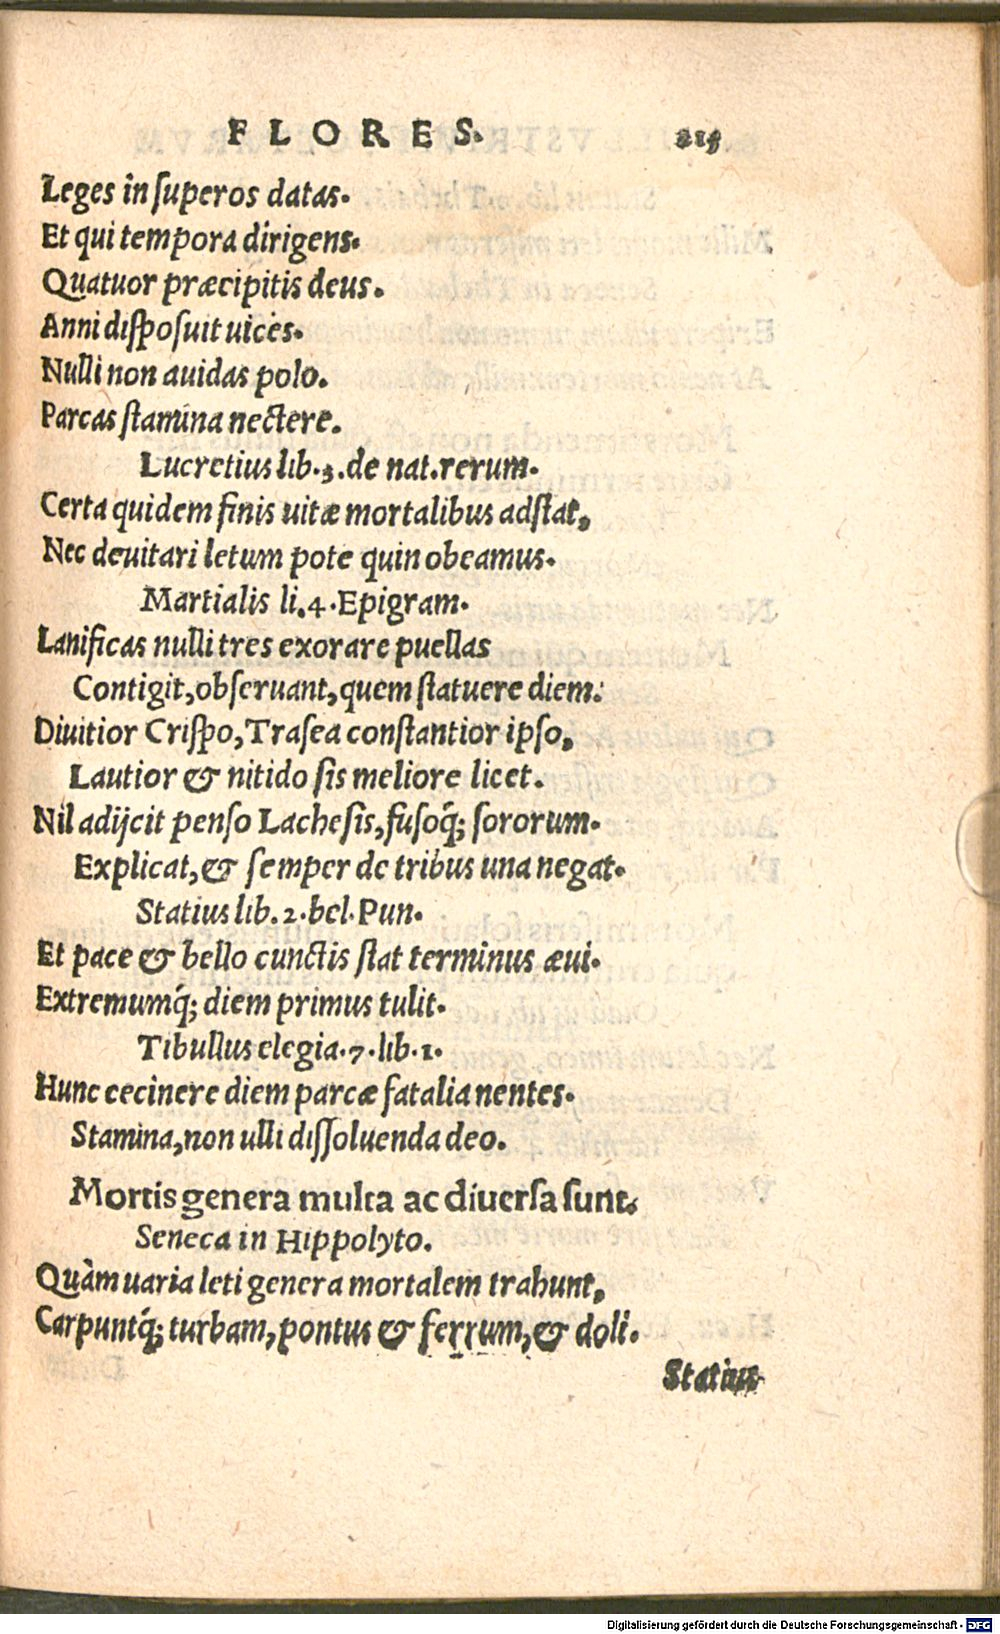 FLORES. 215
Leges in superos datas.
Et qui tempora dirigens.
Quatuor præcipitis deus.
Anni disposuit uices.
Nulli non auidas polo.
Parcas stamina nectere.
Lucretius lib.3.de nat.rerum.
Certa quidem finis uitæ mortalibus adstat,
Nec deuitari letum pote quin obeamus.
Martialis li.4.Epigram.
Lanificas nulli tres exorare puellas
Contigit,obseruant,quem statuere diem:
Diuitior Crispo,Trasea constantior ipso,
Lautior & nitido sis meliore licet.
Nil adijcit penso Lachesis,fusoq́; sororum.
Explicat,& semper de tribus una negat.
Statius lib.2.bel.Pun.
Et pace & bello cunctis stat terminus æui.
Extremumq́; diem primus tulit.
Tibullus elegia.7.lib.1.
Hunc cecinere diem parcæ fatalia nentes.
Stamina,non ulli dissoluenda deo.
Mortis genera multa ac diuersa sunt.
Seneca in Hippolyto.
Quàm uaria leti genera mortalem trahunt,
Carpuntq́; turbam,pontus & ferrum,& doli.
Statius
Digitalisierung gefördert durch die Deutsche Forschungsgemeinschaft - DFG